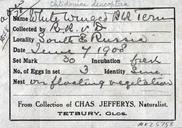 Chlidonias leucoptera
Name White Winged Blk Tern
Collected by
Locality South E Russia
Date June 7 1908
Set Mark 30 Incubation fresh
No. of Eggs in set 3 Identity Sure
Nest on floating vegetation
From Collection of CHAS JEFFERYS, Naturalist,
TETBURY, Glos.